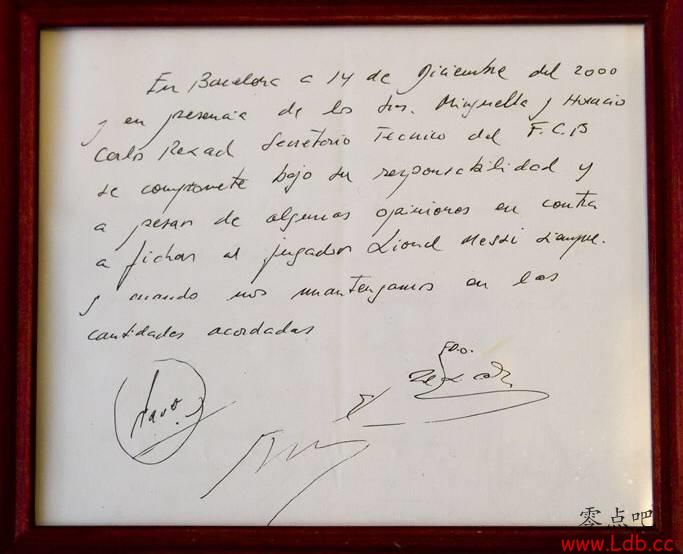 En Barcelona a 14 de Diciembre del 2000
y en presencia de los Sres. Minguella y Horacio
Carlos Rexach Secretario Tecnico del F.C.B
se compromete bajo su responsabilidad y
a pesar de algunas opiniones en contra
a fichar al jugador Lionel Messi siempre.
y cuando nos mantengamos en las
cantidades acordadas
零点吧
www.Ldb.cc